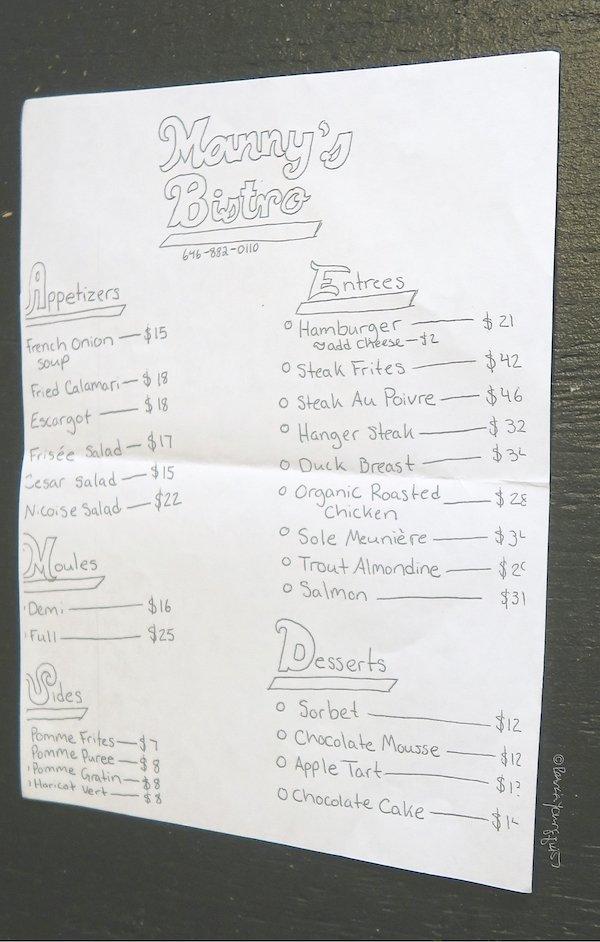 Manny's
Bistro
646-882-0110
Appetizers
French Onion — $15
soup
Fried Calamari — $18
Escargot — $18
Frisée Salad — $17
Cesar Salad — $15
Nicoise Salad — $22
Moules
Demi — $16
Full — $25
Sides
Pomme Frites — $7
Pomme Puree — $8
Pomme Gratin — $8
Haricot Vert — $8
Entrees
Hamburger — $21
add cheese — $2
Steak Frites — $42
Steak Au Poivre — $46
Hanger Steak — $32
Duck Breast —
Organic Roasted — $28
Chicken
Sole Meunière —
Trout Almondine —
Salmon — $31
Desserts
Sorbet — $12
Chocolate Mousse — $12
Apple Tart —
Chocolate Cake —